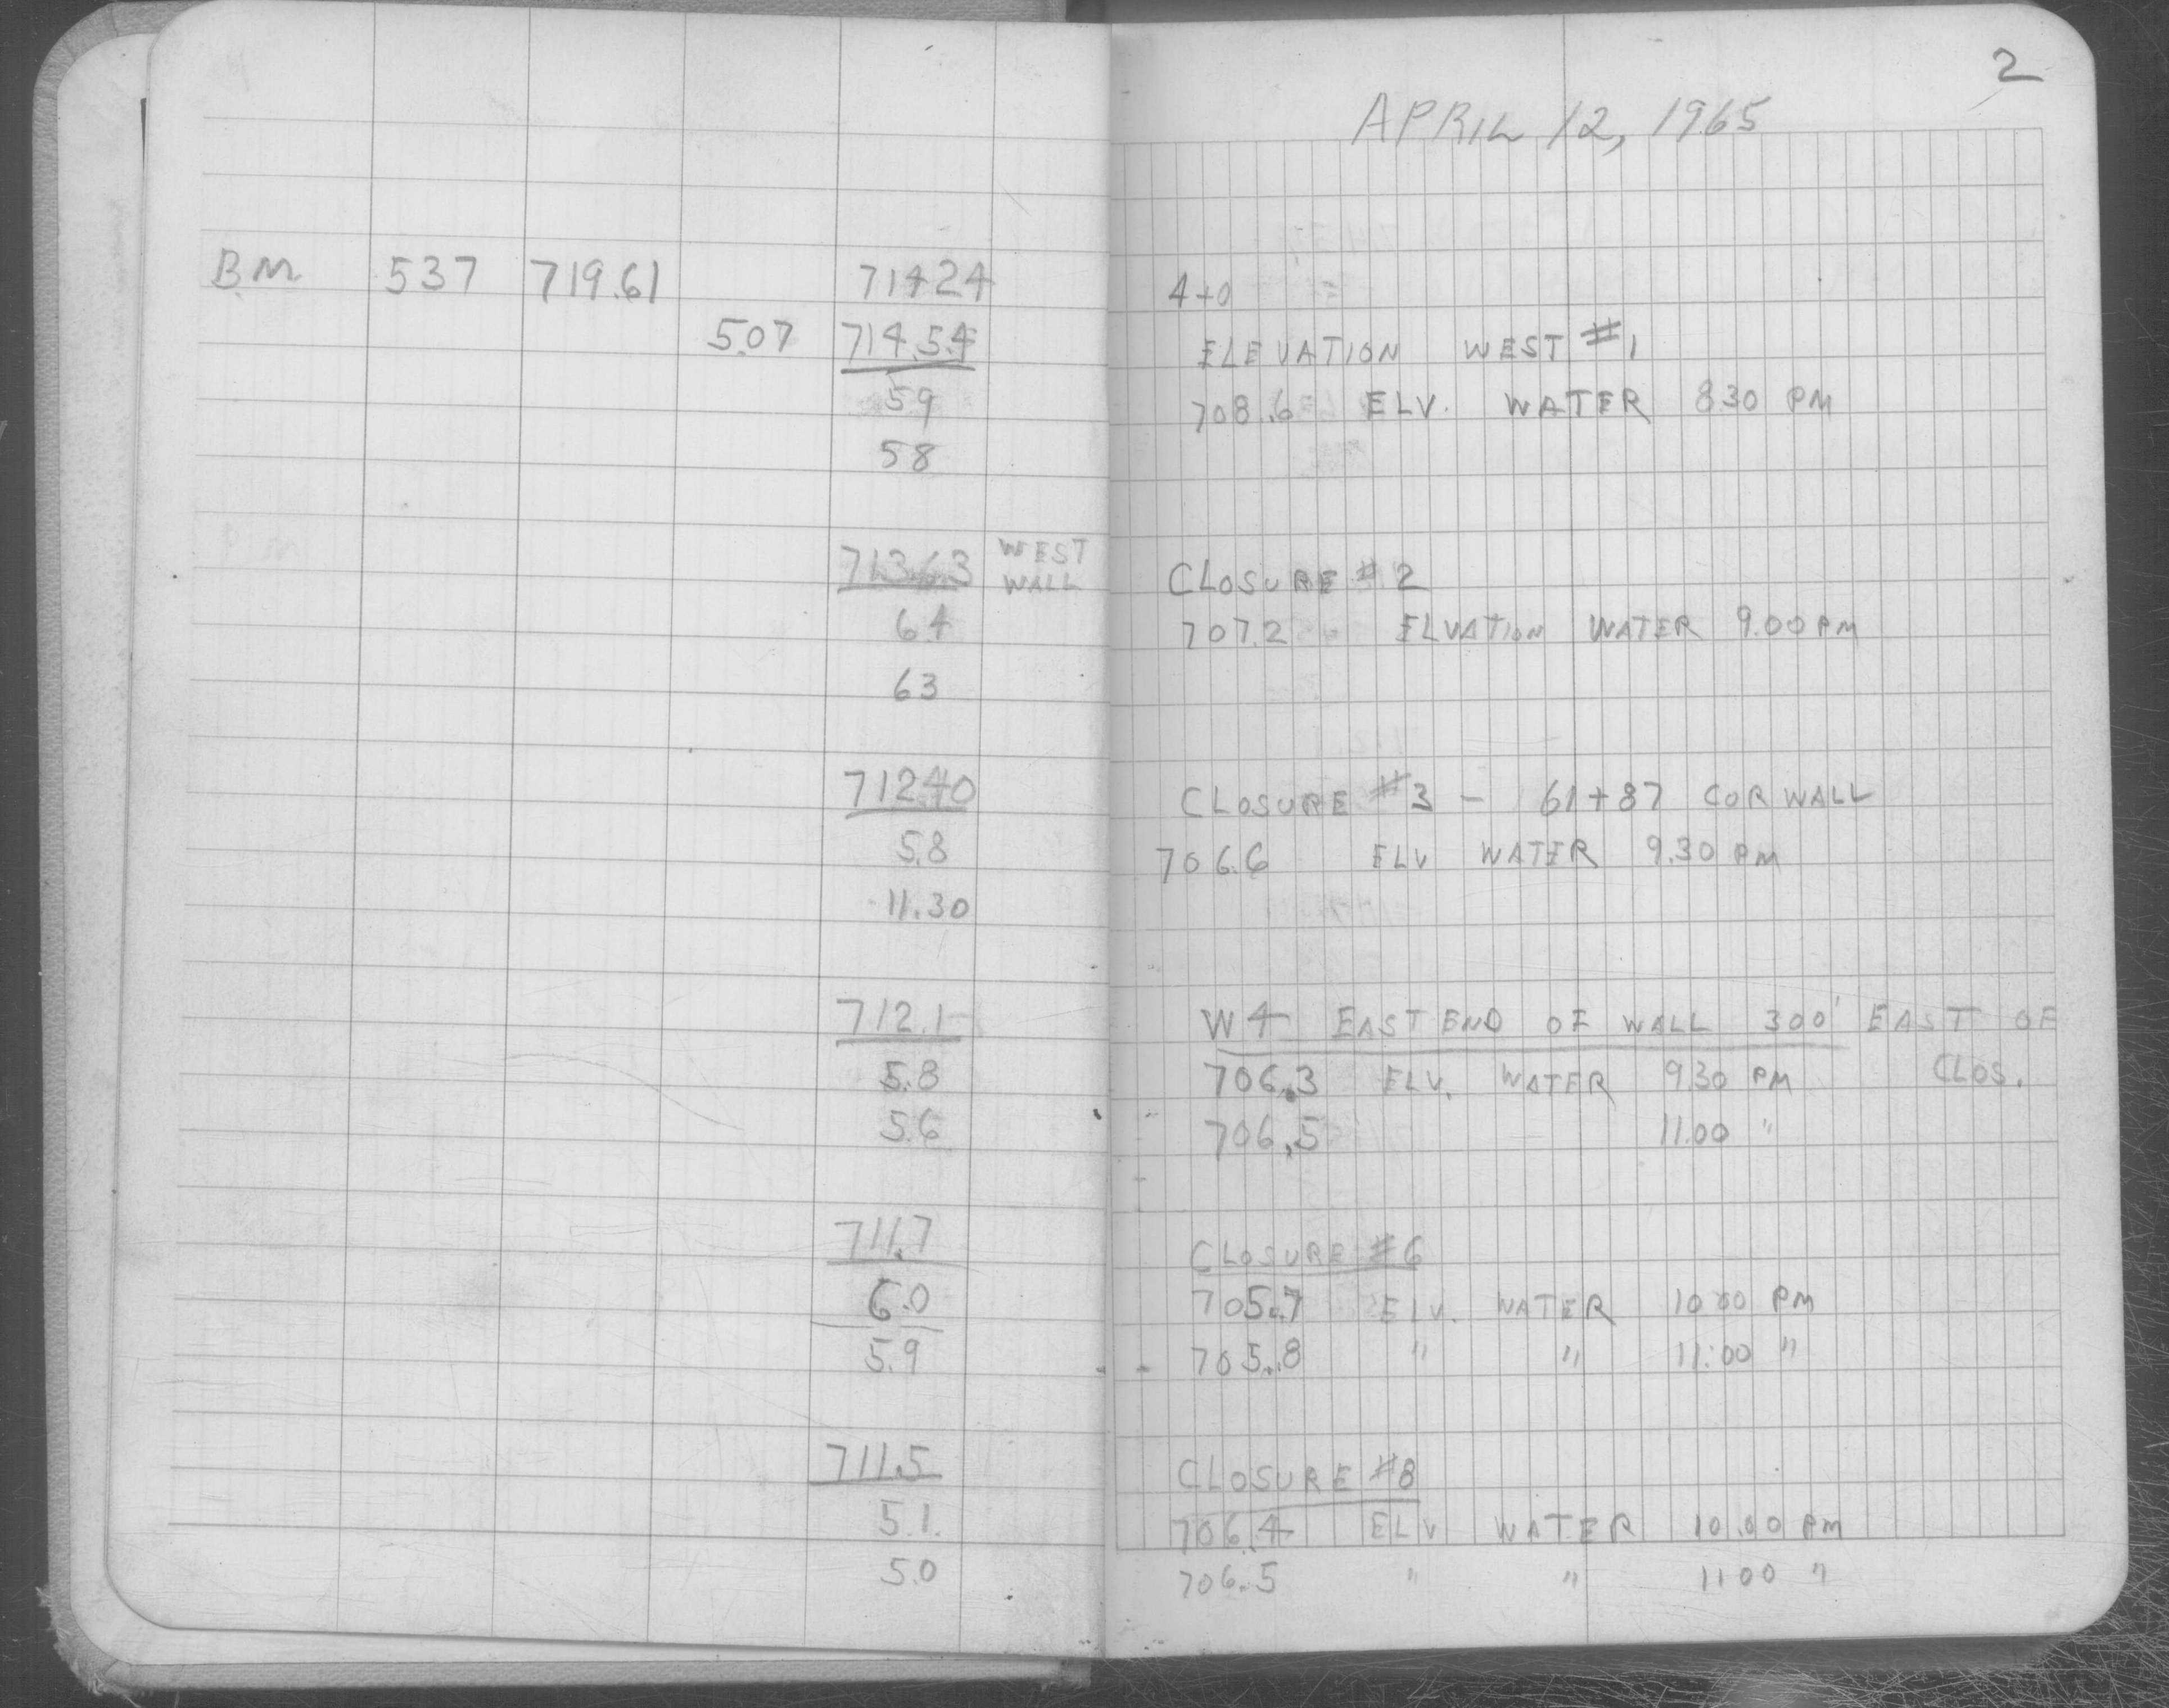 2
APRIL 12, 1965
B.M 537 719.61 71424 4+0
5.07 714.54 ELEVATION WEST #1
59 708.6 ELV. WATER 830 PM
58
713.63 WEST WALL CLOSURE #2
64 707.2 ELVATION WATER 9.00 PM
63
71240 CLOSURE #3 - 61+87 COR WALL
5.8 706.6 ELV WATER 9.30 PM
11.30
712.1 W4 EAST END OF WALL 300' EAST OF CLOS.
5.8 706.3 ELV. WATER 930 PM
5.6 706.5 11.00 "
711.7 CLOSURE #6
6.0 705.7 ELV. WATER 10 00 PM
5.9 705.8 " " 11:00 "
711.5 CLOSURE #8
5.1. 706.4 ELV WATER 10.00 PM
5.0 706.5 " " 1100 "